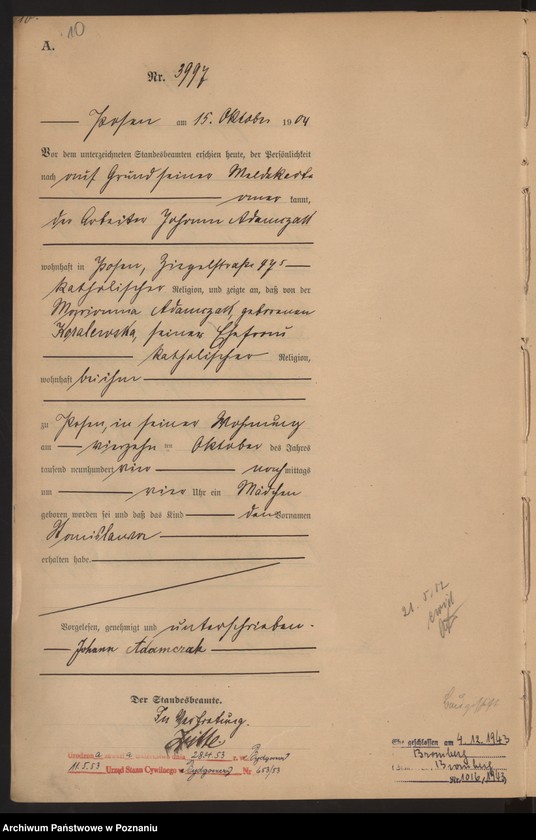 10
A.
Nr. 3997
Posen am 15. Oktober 1904
Vor dem unterzeichneten Standesbeamten erschien heute, der Persönlichkeit
nach auf Grund seiner Meldekarte
aner kannt,
der Arbeiter Johann Adamczak
wohnhaft in Posen, Ziegelstraße
katholischer Religion, und zeigte an, daß von der
Marianna Adamczak, geborenen
seiner Ehefrau
katholischer Religion,
wohnhaft bei ihm
zu Posen, in seiner Wohnung
am vierzehn ten Oktober des Jahres
tausend neunhundert vier nach mittags
um vier Uhr ein Mädchen
geboren worden sei und daß das Kind den Vornamen
Stanislawa
erhalten habe.
Vorgelesen, genehmigt und unterschrieben.
Johann Adamczak
Der Standesbeamte.
In Vertretung.
21.5.52
Ehe geschlossen am 4.12.1943
Bromberg
Bromberg
Nr. 1016/1943
28.4.53
11.5.53 Urząd Stanu Cywilnego w Bydgoszczy Nr 653/53
Archiwum Państwowe w Poznaniu